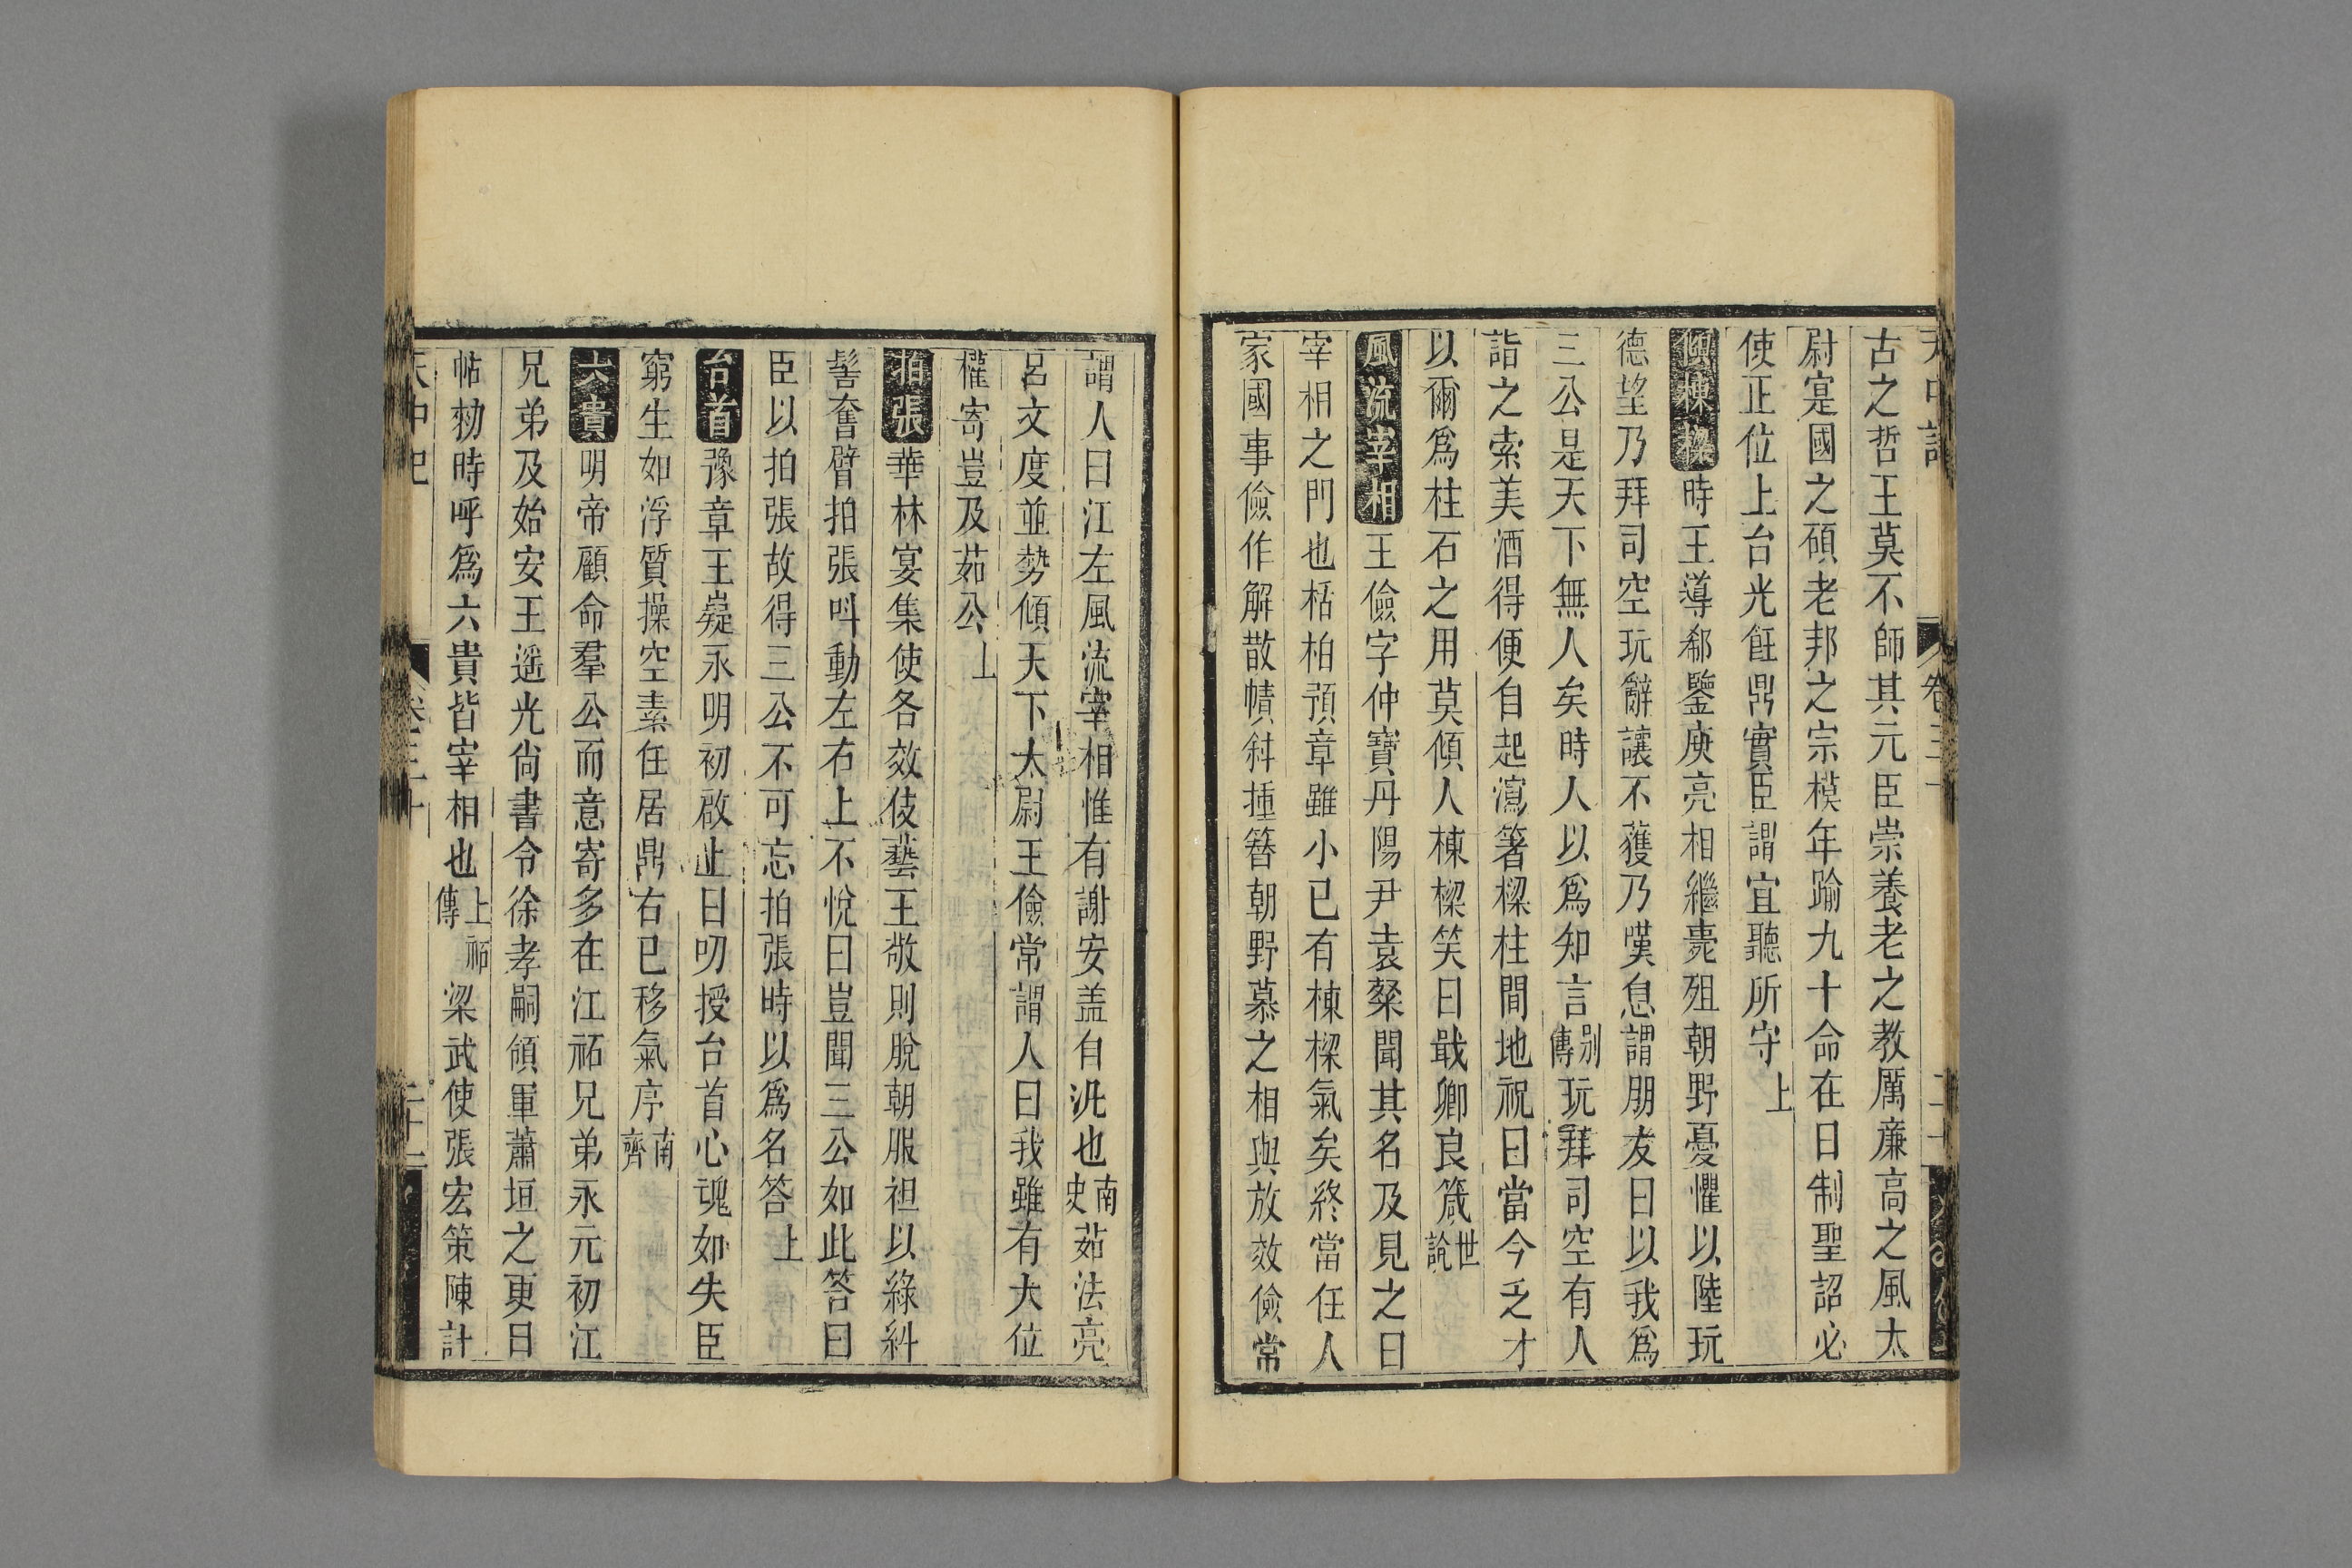 古之哲王莫不師其元臣崇養老之教厲亷高之風太
尉寔國之碩老邦之宗模年踰九十命在日制聖詔必
使正位上台光飪鼎實臣謂宜聽所守上
傾棟樑時王導郗鑒庾亮相繼薨殂朝野憂懼以陸玩
德望乃拜司空玩辭讓不獲乃嘆息謂朋友曰以我爲
三公是天下無人矣時人以爲知言別傳玩拜司空有人
詣之索美酒得便自起瀉箸樑柱間地祝曰當今乏才
以爾爲柱石之用莫傾人棟樑笑曰戢卿良箴世說
風流宰相王儉字仲寶丹陽尹袁粲聞其名及見之曰
宰相之門也栝柏預章雖小已有棟樑氣矣終當任人
家國事儉作解散幘斜插簪朝野慕之相與放效儉常
謂人曰江左風流宰相惟有謝安盖自況也南史茹法亮
呂文度並勢傾天下太尉王儉常謂人曰我雖有大位
權寄豈及茹公上
拍張華林宴集使各效伎藝王敬則脫朝服袒以綠糾
髻奮臂拍張叫動左右上不悅曰豈聞三公如此答曰
臣以拍張故得三公不可忘拍張時以爲名答上
台首豫章王嶷永明初啟止曰叨授台首心魂如失臣
窮生如浮質操空素任居鼎右已移氣序南齊
六貴明帝顧命羣公而意寄多在江祏兄弟永元初江
兄弟及始安王遥光尙書令徐孝嗣領軍蕭垣之更日
帖勑時呼爲六貴皆宰相也上祏傳梁武使張宏策陳計